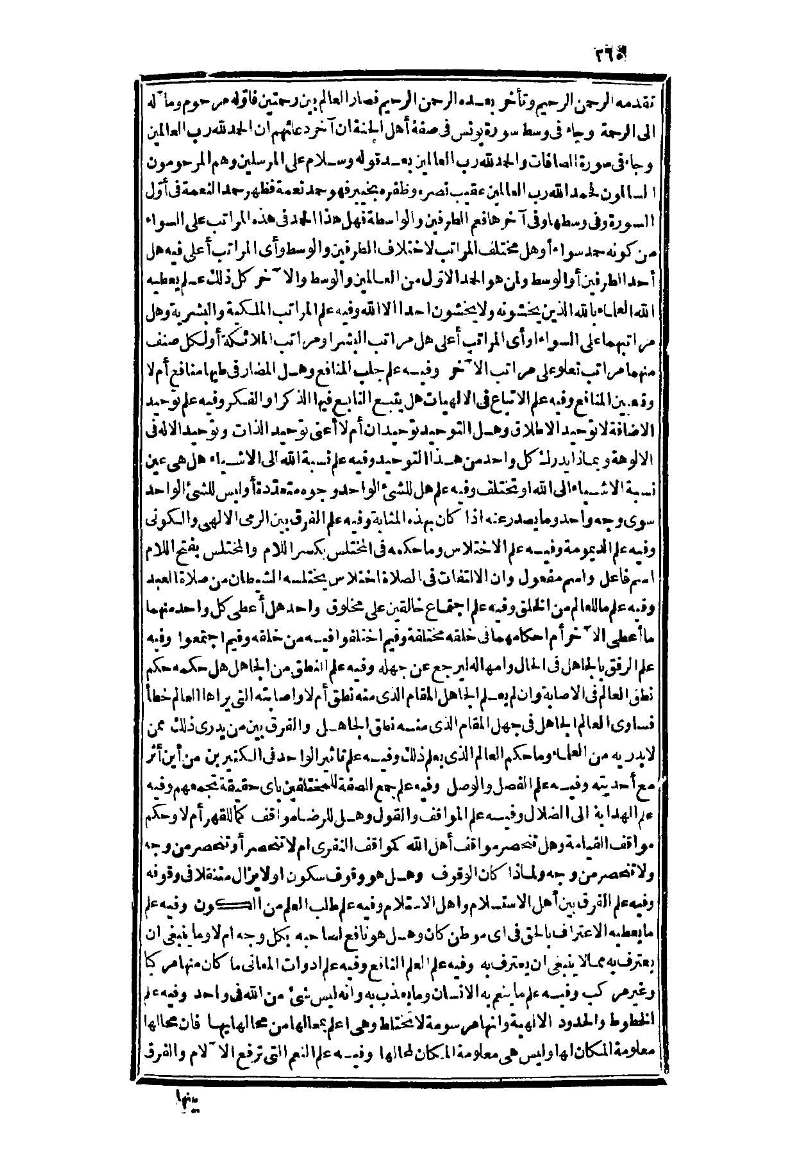 ٣٦٥
تقدمه الرحمن الرحيم وتأخر بعده الرحمن الرحيم فصار العالم بين رحمتين فأوله مرحوم ومآله
الى الرحمة وجاء فى وسط سورة يونس فى صفة أهل الجنة ان آخر دعائهم ان الحمد لله رب العالمين
وجاء فى سورة الصافات والحمد لله رب العالمين بعد قوله وسلام على المرسلين وهم المرحومون
السالمون فحمد الله رب العالمين عقيب نصره وظفره بخيبر فهو حمد نعمة فظهر حمد النعمة فى أول
السورة وفى وسطها وفى آخرها فعم الطرفين والواسطة فهل هذا الحمد فى هذه المراتب على السواء
من كونه حمد سواء أو هل مختلف المراتب لاختلاف الطرفين والوسط وأى المراتب أعلى فيه هل
أحد الطرفين أو الوسط ولمن هو الحمد الاول من العالمين والوسط والآخر كل ذلك علم يعطيه
الله العلماء بالله الذين يخشونه ولا يخشون احدا الا الله وفيه علم المراتب الملكية والبشرية وهل
مراتبهما على السواء أو أى المراتب أعلى هل مراتب البشر او مراتب الملائكة أو لكل صنف
منهما مراتب تعلو على مراتب الآخر وفيه علم جلب المنافع وهل المضار فى طيها منافع أم لا
وتعيين المنافع وفيه علم الاتباع فى الالهيات هل يتبع التابع فيها الذكر او الفكر وفيه علم توحيد
الاضافة لا توحيد الاطلاق وهل التوحيد توحيدان أم لا أعنى توحيد الذات وتوحيد الاله فى
الالوهة وبماذا يدرك كل واحد من هذا التوحيد وفيه علم نسبة الله الى الاشياء هل هى عين
نسبة الاشياء الى الله او تختلف وفيه علم هل للشئ الواحد وجوه متعددة أو ليس للشئ الواحد
سوى وجه واحد وما يصدر عنه اذا كان بهذه المثابة وفيه علم الفرق بين الرمى الالهى والكونى
وفيه علم الديمومة وفيه علم الاختلاس وما حكمه فى المختلس بكسر اللام والمختلس بفتح اللام
اسم فاعل واسم مفعول وان الالتفات فى الصلاة اختلاس يختلسه الشيطان من صلاة العبد
وفيه علم ما للعالم من الخلق وفيه علم اجتماع خالقين على مخلوق واحد هل أعطى كل واحد منهما
ما أعطى الآخر أم احكامهما فى خلقه مختلفة وفيم اختلفوا فيه من خلقه وفيم اجتمعوا وفيه
علم الرفق بالجاهل فى الحال وامهاله ليرجع عن جهله وفيه علم النطق من الجاهل هل حكمه حكم
نطق العالم فى الاصابة وان لم يعلم الجاهل المقام الذى منه نطق أم لا واصابته التى يراها العالم خطأ
فساوى العالم الجاهل فى جهل المقام الذى منه نطق الجاهل والفرق بين من يدرى ذلك ممن
لا يدريه من العلماء وما حكم العالم الذى يعلم ذلك وفيه علم تأثير الواحد فى الكثيرين من أين أثر
مع أحديته وفيه علم الفصل والوصل وفيه علم جمع الصفة للمختلفين بأى حقيقة تجمعهم وفيه
علم الهداية الى الضلال وفيه علم المواقف والقول وهل للرضا مواقف كما للقهر أم لا وحكم
مواقف القيامة وهل تنحصر مواقف أهل الله كمواقف النفرى ام لا تنحصر أو تنحصر من وجه
ولا تنحصر من وجه ولماذا كان الوقوف وهل هو وقوف سكون او لا يزال متنقلا فى وقوفه
وفيه علم الفرق بين أهل الاستسلام واهل الاستلام وفيه علم طلب العلم من الكون وفيه علم
ما يعطيه الاعتراف بالحق فى اى موطن كان وهل هو نافع لصاحبه بكل وجه ام لا وما ينبغى ان
يعترف به مما لا ينبغى ان يعترف به وفيه علم العلم النافع وفيه علم ادوات المعانى ما كان منها مركبا
وغير مركب وفيه علم ما ينعم به الانسان وما يعذب به وانه ليس شئ من الله فى واحد وفيه علم
الخطوط والحدود الالهية وانها مرسومة لا تختلط وهى اعلم بمحالها من محالها بها فان محالها
معلومة المكان لها وليس هى معلومة المكان لمحالها وفيه علم النعم التى ترفع الآلام والفرق
بينها